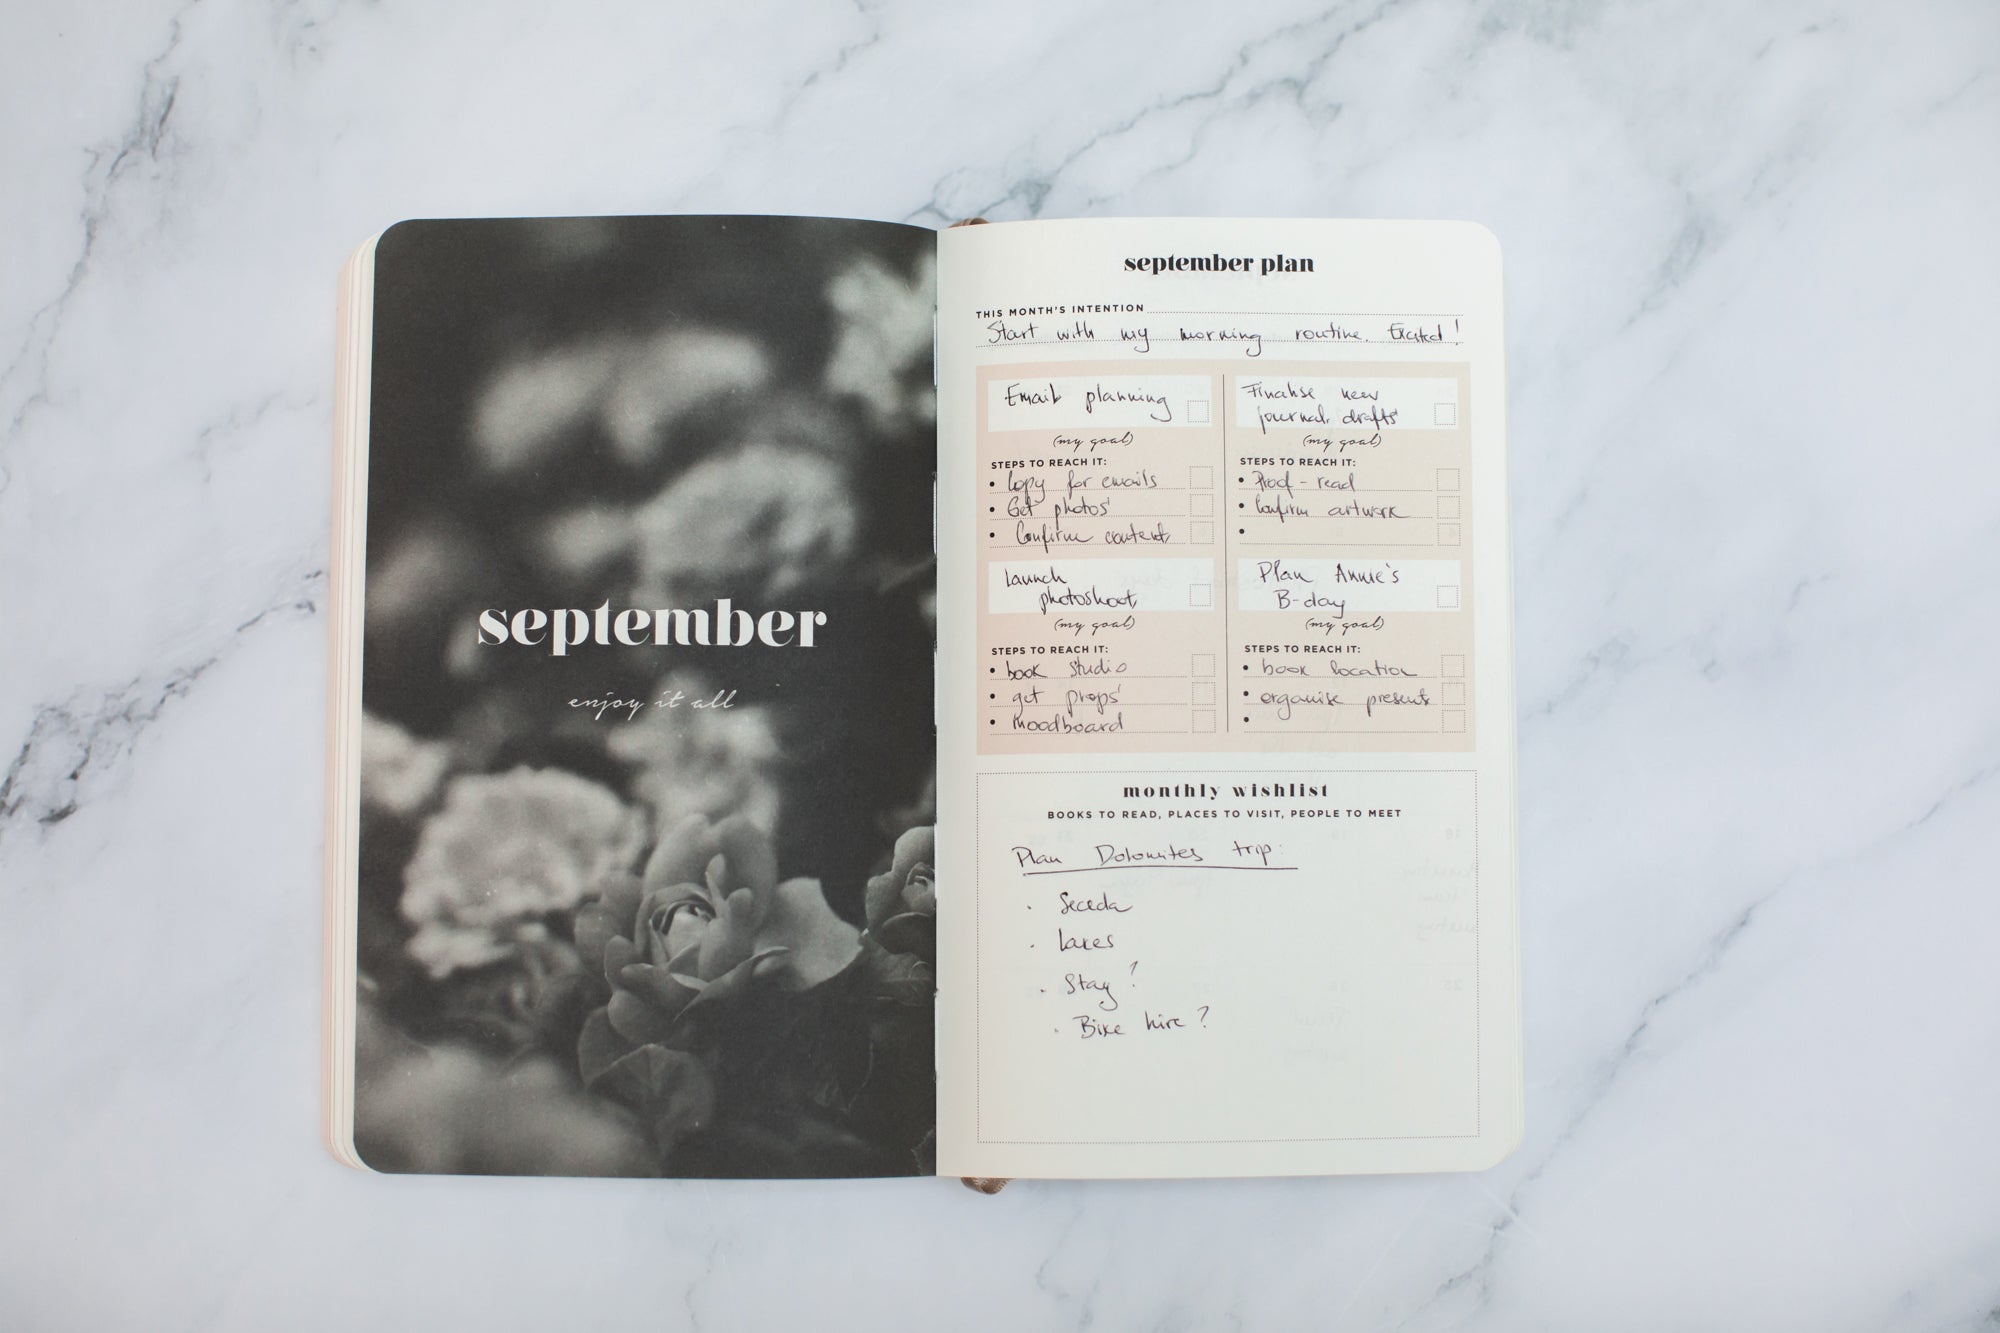 september
enjoy it all
september plan
THIS MONTH'S INTENTION
Start with my morning routine. Excited!
Email planning
(my goal)
STEPS TO REACH IT:
• Copy for emails
• Get photos
• Confirm content
Finalise new
journal drafts
(my goal)
STEPS TO REACH IT:
• Proof-read
• Confirm artwork
•
Launch
photoshoot
(my goal)
STEPS TO REACH IT:
• book studio
• get props
• moodboard
Plan Annie's
B-day
(my goal)
STEPS TO REACH IT:
• book location
• organise presents
•
monthly wishlist
BOOKS TO READ, PLACES TO VISIT, PEOPLE TO MEET
Plan Dolomites trip:
· Seceda
· Lakes
· Stay?
· Bike hire?